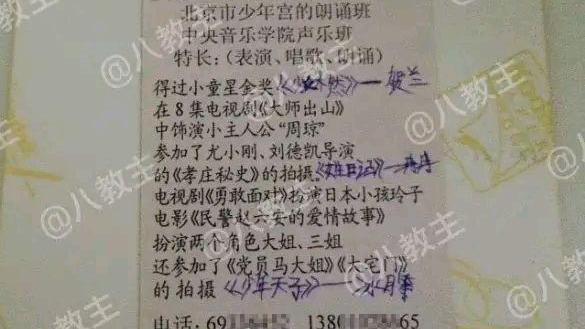 北京市少年宫的朗诵班
中央音乐学院声乐班
特长:(表演、唱歌、朗诵)
得过小童星金奖《少年天子》—贺兰
在8集电视剧《大师出山》
中饰演小主人公“周琼”
参加了尤小刚、刘德凯导演
的《孝庄秘史》的拍摄.
电视剧《勇敢面对》扮演日本小孩玲子
电影《民警赵六安的爱情故事》
扮演两个角色大姐、三姐
还参加了《党员马大姐》《大宅门》
的拍摄《少年天子》—水月
电话:69 1380 65
@八教主
@八教主
@八教主
@八教主
@八教主
@八教主